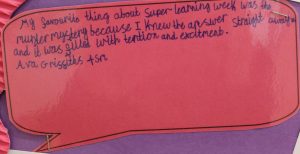 My favourite thing about super-learning week was the
murder mystery because I knew the answer straight away
and it was filled with tention and excitment.
Ava Griffiths 4SM